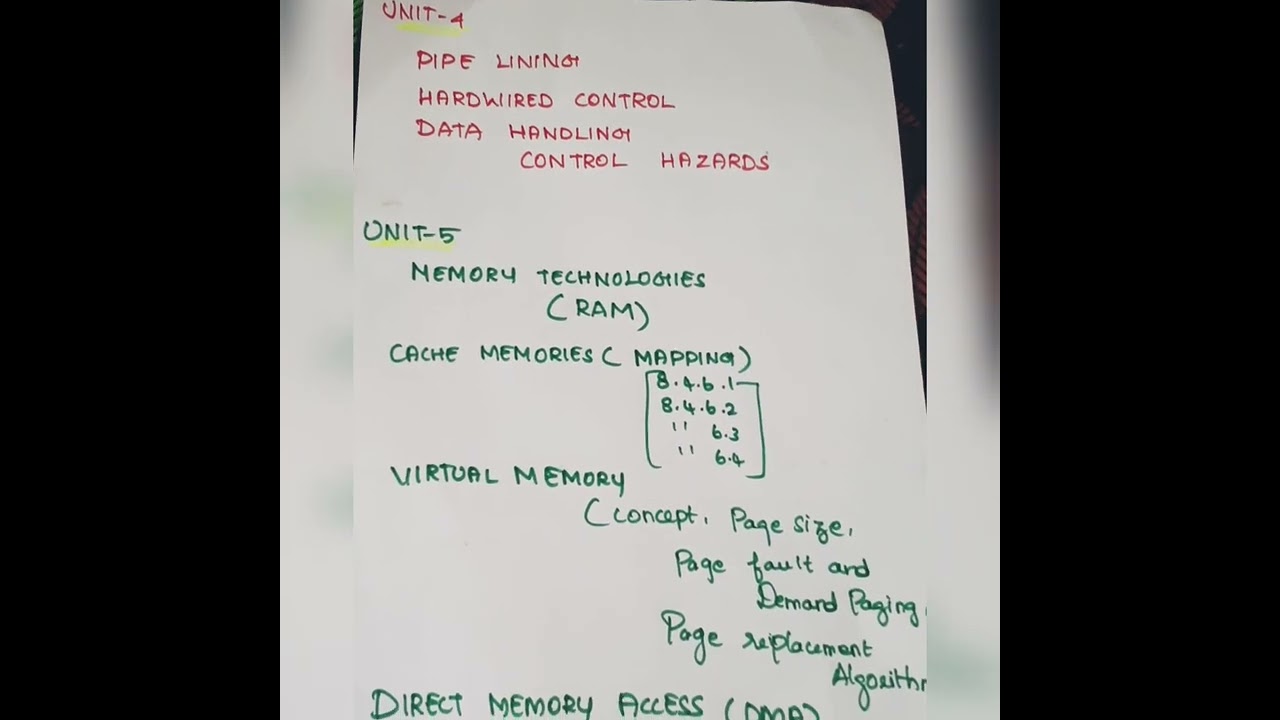 UNIT-4
PIPE LINING
HARDWIRED CONTROL
DATA HANDLING
CONTROL HAZARDS
UNIT-5
MEMORY TECHNOLOGIES
(RAM)
CACHE MEMORIES (MAPPING)
8.4.6.1
8.4.6.2
" 6.3
" 6.4
VIRTUAL MEMORY
(concept, Page size,
Page fault and
Demand Paging,
Page replacement
Algorithm
DIRECT MEMORY ACCESS (DMA)